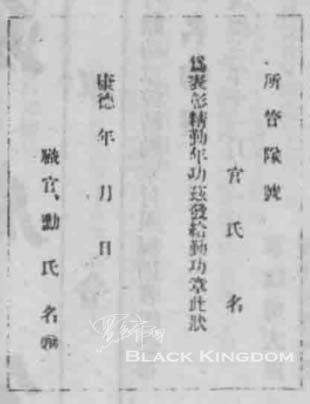 所管隊號
官氏名
爲表彰精勤年功茲發給勤功章此狀
康德年月日
職官、勳氏名㊞
BLACK KINGDOM